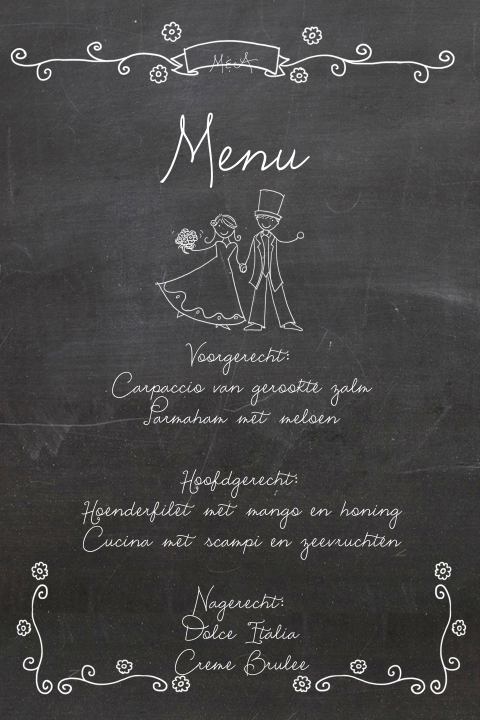 M&A
Menu
Voorgerecht:
Carpaccio van gerookte zalm
Parmaham met meloen
Hoofdgerecht:
Hoenderfilet met mango en honing
Cucina met scampi en zeevruchten
Nagerecht:
Dolce Italia
Creme Brulee